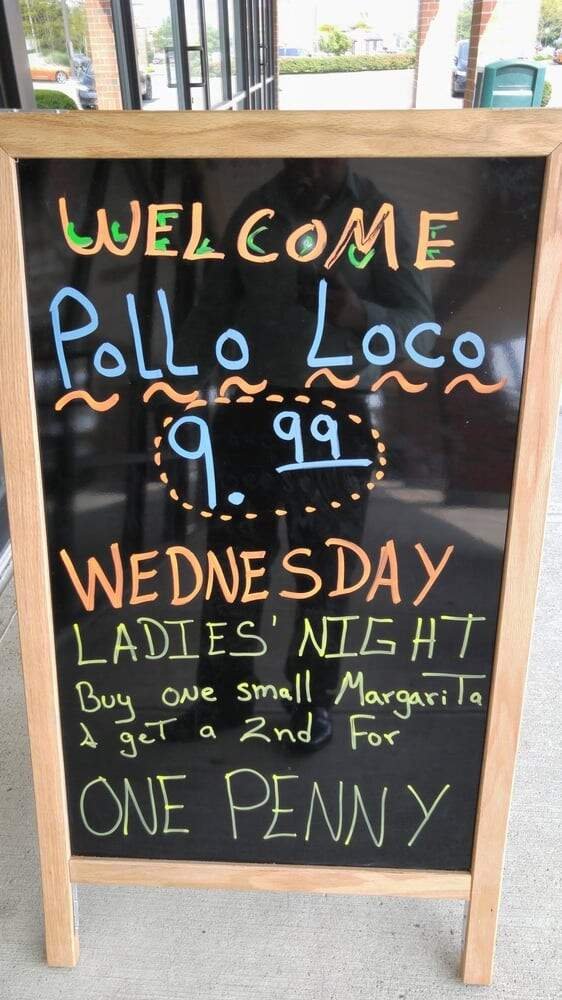 WELCOME
POLLO LOCO
9.99
WEDNESDAY
LADIES' NIGHT
Buy one small Margarita
& get a 2nd For
ONE PENNY